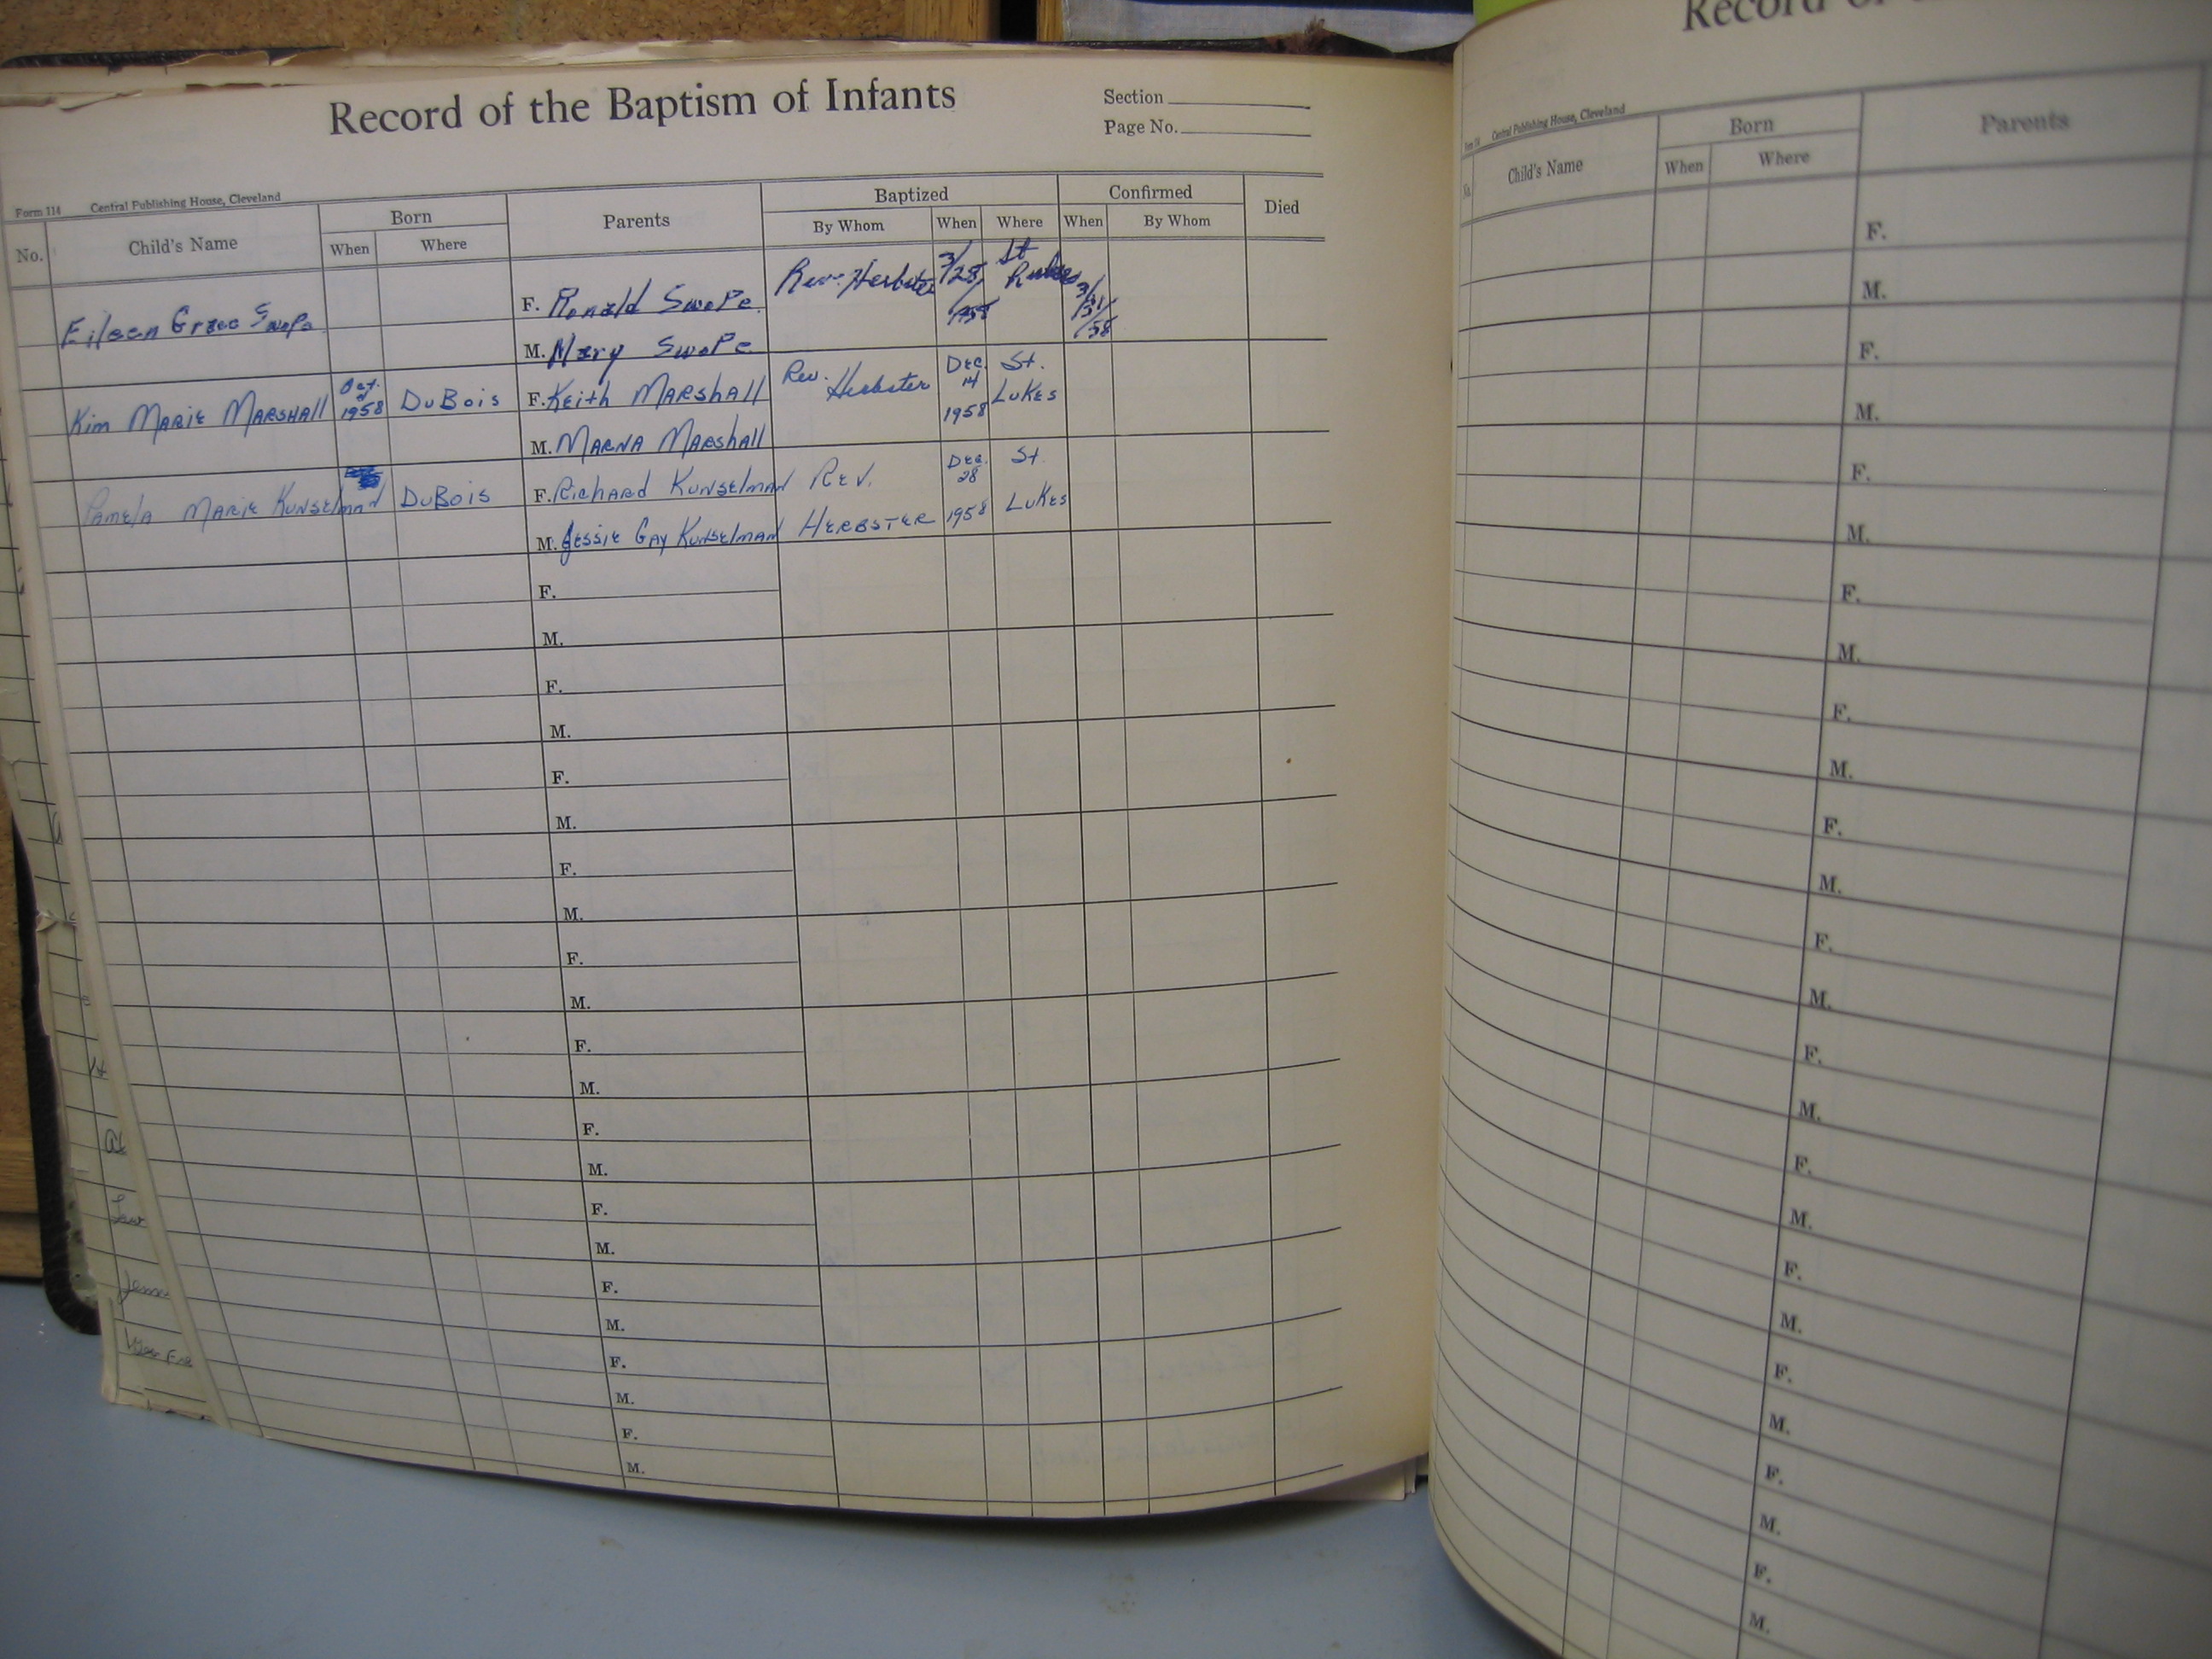 Record of the Baptism of Infants
Section
Page No.
Form 114 Central Publishing House, Cleveland
No. Child's Name Born When Where Parents Baptized By Whom When Where Confirmed When By Whom Died
Eileen Grace Swope F. Ronald Swope Rev. Herbster 3/28/1958 St Lukes 3/31/58
M. Mary Swope
Kim Marie Marshall Oct. 1958 DuBois F. Keith Marshall Rev. Herbster Dec. 14 1958 St. Lukes
M. Marna Marshall
Pamela Marie Kunselman DuBois F. Richard Kunselman Rev. Herbster Dec. 28 1958 St. Lukes
M. Jessie Gay Kunselman
F.
M.
F.
M.
F.
M.
F.
M.
F.
M.
F.
M.
F.
M.
F.
M.
F.
M.
F.
M.
F.
M.
Record
Central Publishing House, Cleveland
No. Child's Name Born When Where Parents
F.
M.
F.
M.
F.
M.
F.
M.
F.
M.
F.
M.
F.
M.
F.
M.
F.
M.
F.
M.
F.
M.
F.
M.
F.
M.